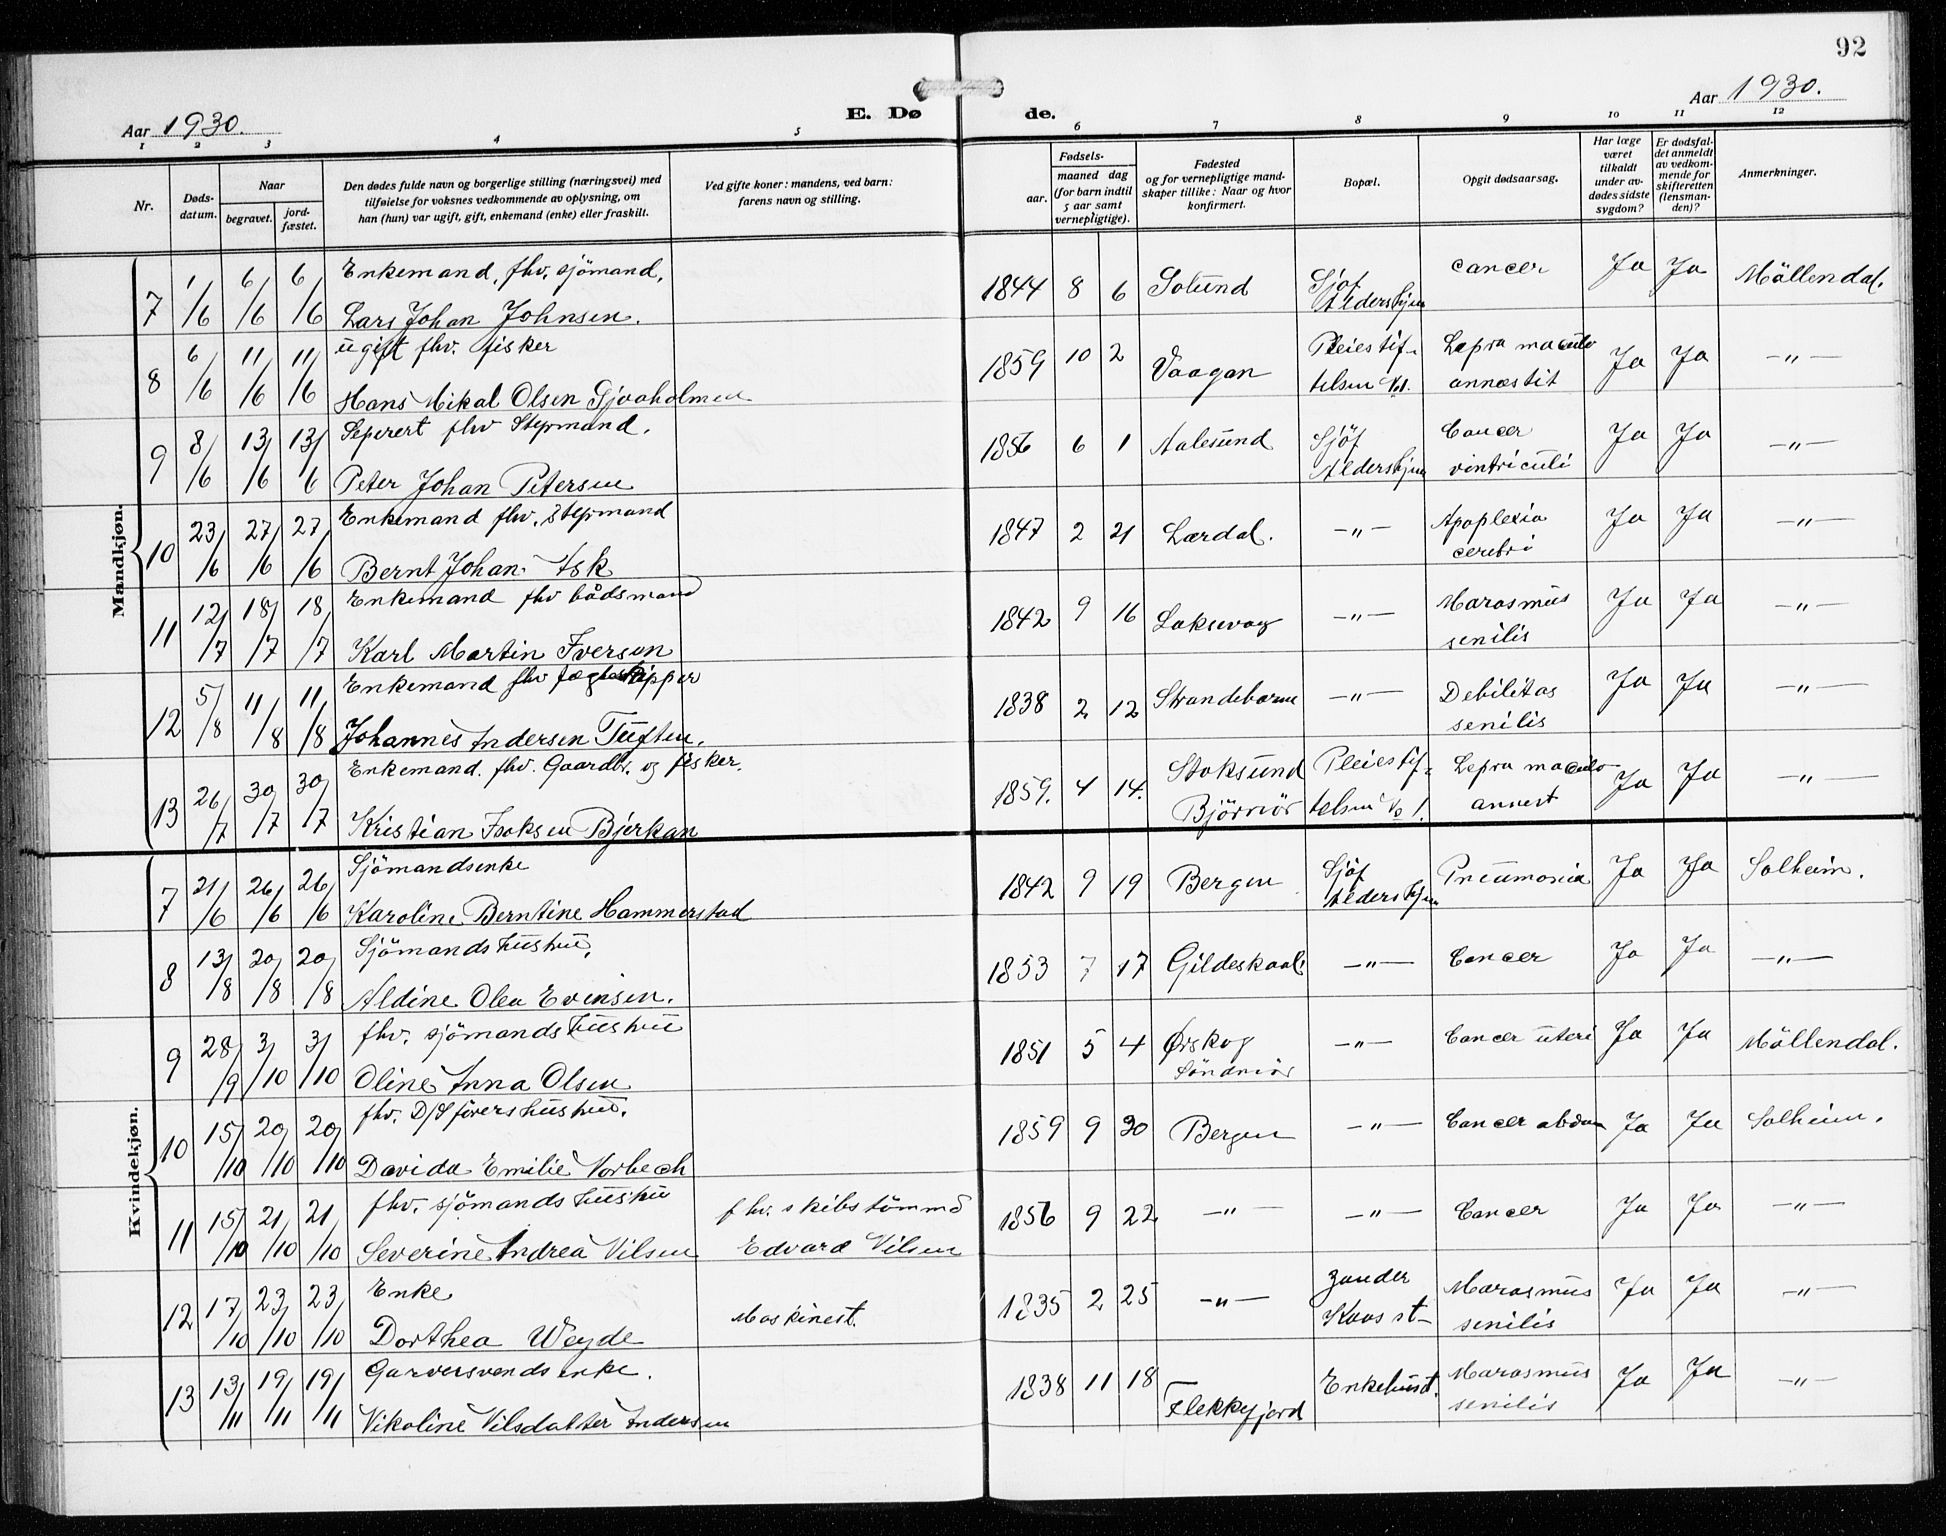 92
Aar 1930. E. Dø de. Aar 1930.
1 2 3 4 5 6 7 8 9 10 11 12
Nr.
Døds-
datum.
Naar
begravet.
jord-
fæstet.
Den dødes fulde navn og borgerlige stilling (næringsvei) med
tilføielse for voksnes vedkommende av oplysning, om
han (hun) var ugift, gift, enkemand (enke) eller fraskilt.
Ved gifte koner: mandens, ved barn:
farens navn og stilling.
Fødsels-
aar.
maaned dag
(for barn indtil
5 aar samt
vernepligtige).
Fødested
og for vernepligtige mand-
skaper tillike: Naar og hvor
konfirmert.
Bopæl.
Opgit dødsaarsag.
Har læge
været
tilkaldt
under av-
dødes sidste
sygdom?
Er dødsfal-
det anmeldt
av vedkom-
mende for
skifteretten
(lensman-
den)?
Anmerkninger.
Mandkjøn.
7 1/6 6/6 6/6 Enkemand, fhv. sjömand,
Lars Johan Johnsen. 1844 8 6 Solund Sjöf Aldershjem cancer Ja Ja Möllendal.
8 6/6 11/6 11/6 ugift fhv. fisker
Hans Mikal Olsen Gjovaholmen 1859 10 2 Vaagan Pleiestif-
telsen No 1. Lepra maculo
annæstit Ja Ja -"-
9 8/6 13/6 13/6 Seperert fhv Styrmand.
Peter Johan Petersen 1856 6 1 Aalesund Sjöf
Aldershjem Cancer
vintriculi Ja Ja -"-
10 23/6 27/6 27/6 Enkemand fhv. Styrmand
Bernt Johan Ask 1847 2 21 Lærdal. -"- Apoplexia
cerebri Ja Ja -"-
11 12/7 18/7 18/7 Enkemand fhv bådsmand
Karl Martin Iversen 1842 9 16 Laksevag -"- Marasmus
senilis Ja Ja -"-
12 5/8 11/8 11/8 Enkemand fhv jægteskipper
Johannes Andersen Tuften. 1838 2 12 Strandebarm -"- Debilitas
senilis Ja Ja -"-
13 26/7 30/7 30/7 Enkemand. fhv. Gaardbr. og fisker.
Kristian Isaksen Bjerkan 1859. 4 14. Stoksund
Björnör Pleiestif-
telsen No 1. Lepra maculo
annest Ja Ja -"-
Kvindekjøn.
7 21/6 26/6 26/6 Sjömandsenke
Karoline Berntine Hammerstad 1842 9 19 Bergen Sjöf
Aldershjem Pneumonia Ja Ja Solheim.
8 13/8 20/8 20/8 Sjömands hustru,
Aldine Olea Evensen. 1853 7 17 Gildeskaal. -"- Cancer Ja Ja -"-
9 28/9 3/10 3/10 fhv. sjömands hustru
Oline Anna Olsen 1851 5 4 Ørskog
Söndmör -"- Cancer uteri Ja Ja Möllendal.
10 15/10 20/10 20/10 fhv. D/S förers hustru.
Davida Emilie Vorbech 1859 9 30 Bergen -"- Cancer abdom Ja Ja Solheim.
11 15/10 21/10 21/10 fhv. sjömands hustru fhv. skibstömmd
Severine Andrea Nilsen Edvard Nilsen 1856 9 22 -"- -"- Cancer Ja Ja -"-
12 17/10 23/10 23/10 Enke Maskinest.
Dorthea Weyde 1835 2 25 -"- Zander
Kaas st- Marasmus
senilis Ja Ja -"-
13 13/11 19/11 19/11 Garversvends enke.
Nikoline Nilsdatter Andersen 1838 11 18 Flekkefjord Enkehust. Marasmus
senilis Ja Ja -"-